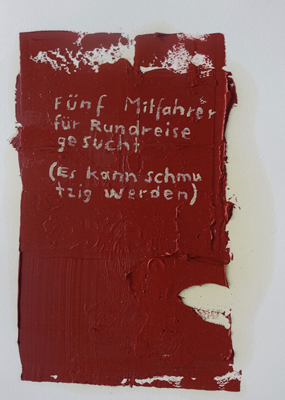 Fünf Mitfahrer
für Rundreise
gesucht
(Es kann schmu
tzig werden)